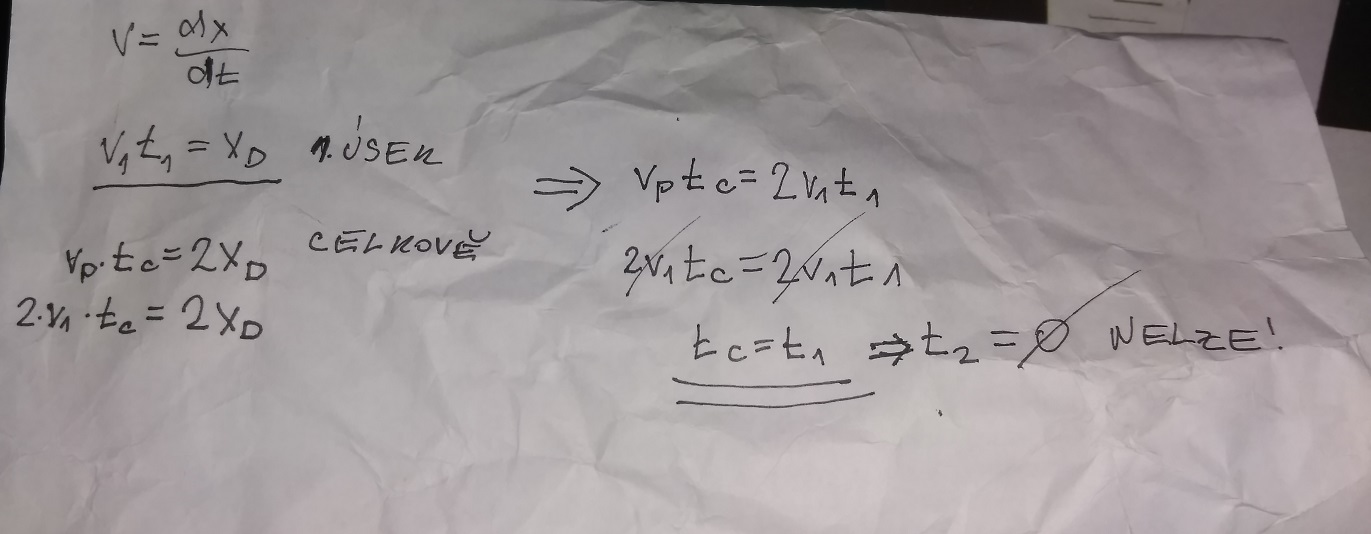 v = dx/dt
v₁t₁ = x_D 1. ÚSEK
v_p · t_c = 2x_D CELKOVĚ
2 · v₁ · t_c = 2x_D
⇒ v_p t_c = 2v₁t₁
2v₁t_c = 2v₁t₁
t_c = t₁ ⇒ t₂ = 0 NELZE!